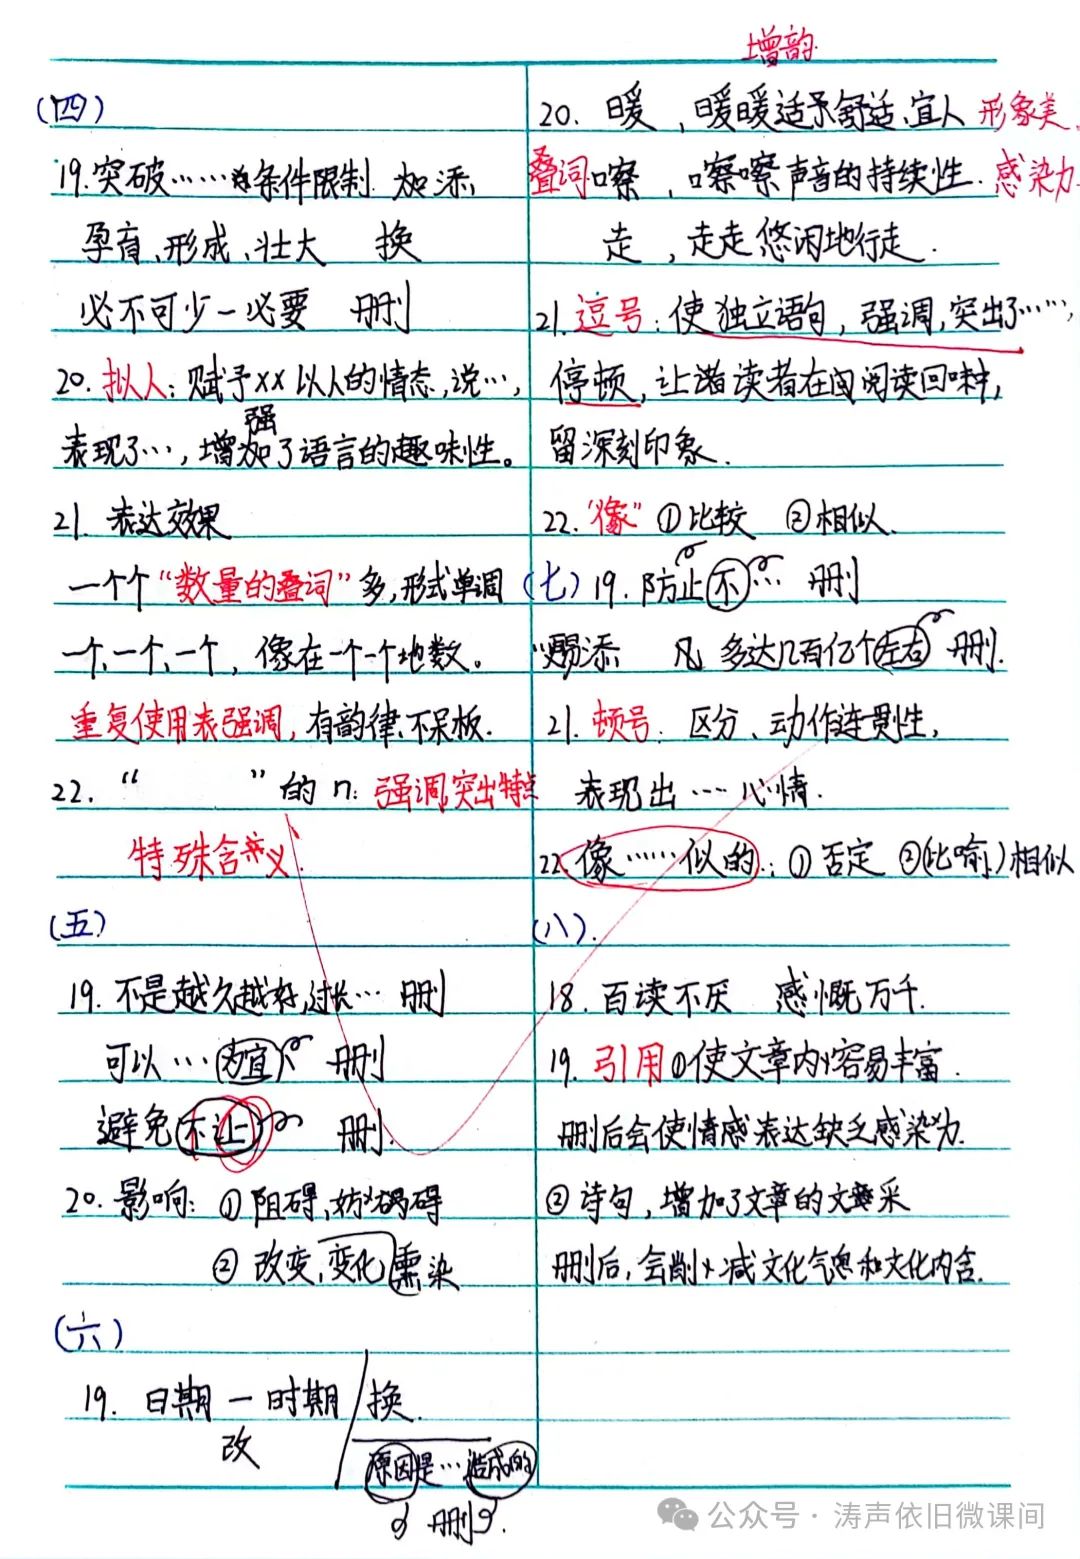 (四)
19.突破……的条件限制 加添
孕育、形成、壮大 换
必不可少一必要 删
20.拟人：赋予xx以人的情态,说…,
表现了…,增加了语言的趣味性。
强
21.表达效果
一个个“数量的叠词”多,形式单调
一个、一个、一个，像在一个一个地数。
重复使用表强调,有韵律、不呆板.
22.“ ”的n:强调,突出特点
特殊含义、
(五)
19.不是越久越好,过长… 删
可以…为宜 删
避免不让 删.
20.影响: ①阻碍、妨碍
②改变、变化 熏染
(六)
19.日期一时期 换.
改
原因是…造成的
删.
增韵.
20.暖，暖暖适予舒适、宜人 形象美、
叠词 嚓，嚓嚓声音的持续性. 感染力
走，走走悠闲地行走.
21.逗号:使独立语句，强调,突出了……,
停顿,让读者在阅读回味,
留深刻印象.
22.“像”①比较 ②相似.
(七)19.防止不… 删
赐添 凡 多达几百亿个左右 删.
21.顿号.区分、动作连贯性,
表现出……心情.
22.像……似的.:①否定 ②(比喻)相似
(八).
18.百读不厌 感慨万千.
19.引用①使文章内容易丰富.
删后会使情感表达缺乏感染力.
②诗句，增加了文章的文采
删后,会削减文化气息和文化内含.
公众号·涛声依旧微课间